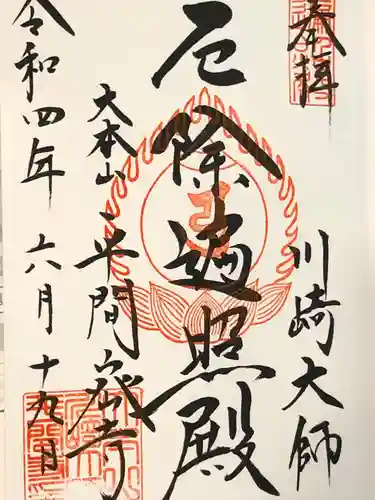 奉拝
川崎大師
厄除遍照殿
大本山平間寺
令和四年六月十九日